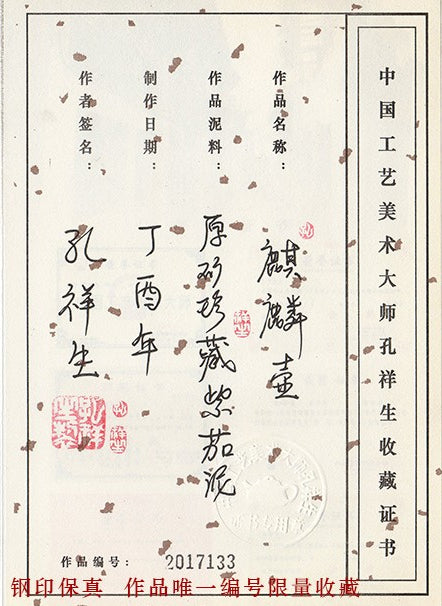 中国工艺美术大师孔祥生收藏证书
作品名称：麒麟壶
作品泥料：原矿珍藏紫茄泥
制作日期：丁酉年
作者签名：孔祥生
作品编号：2017133
钢印保真 作品唯一编号限量收藏